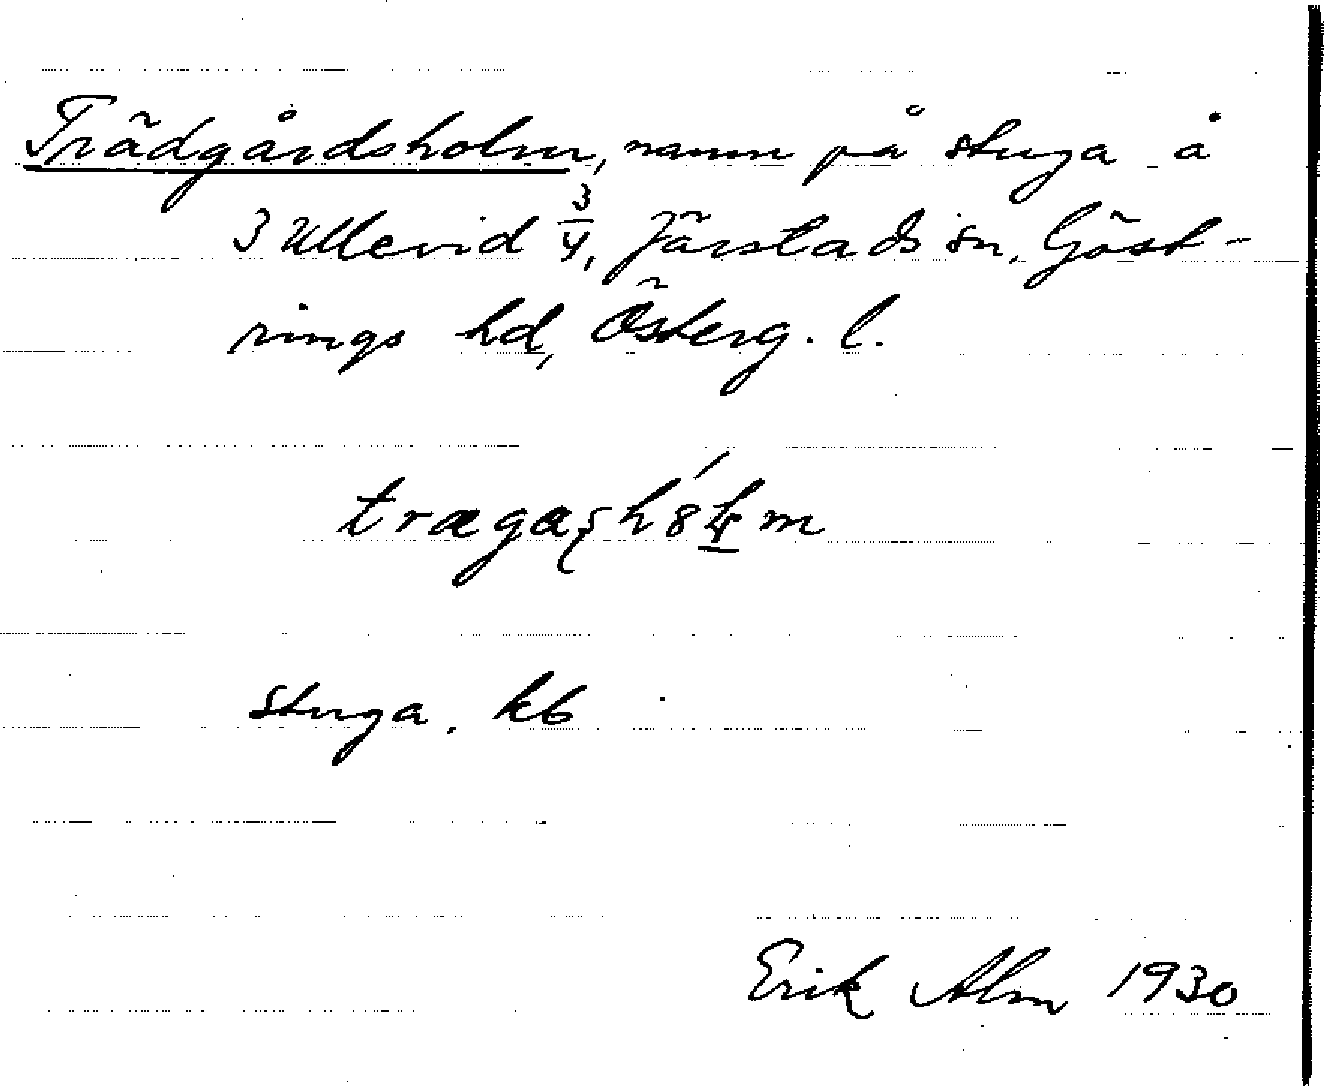 Trädgårdsholm, namn på stuga å
3 Ullevid 3/4, Järstads sn, Göst-
rings hd, Österg. l.
stuga. kb
Erik Alm 1930